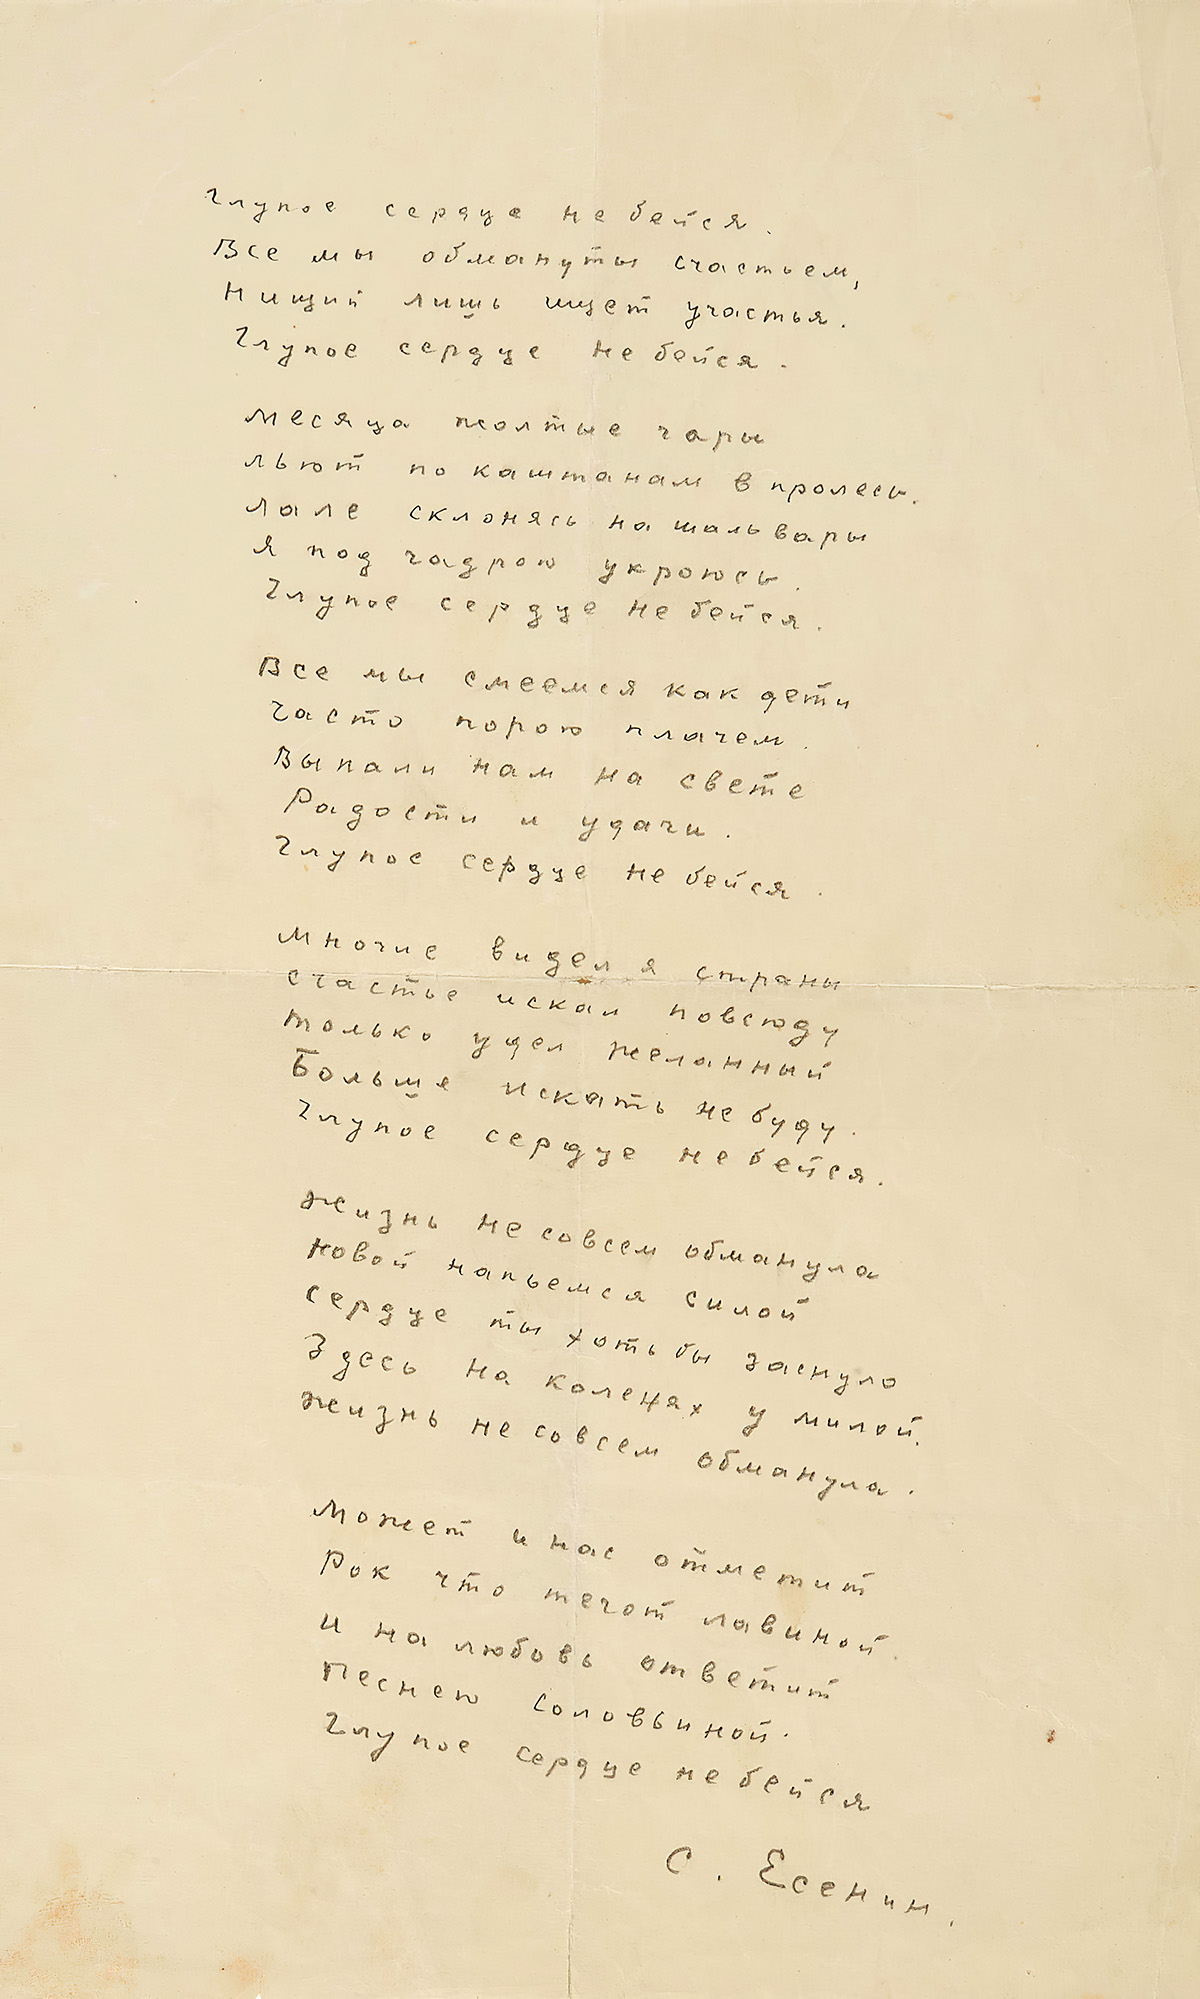 Глупое сердце не бейся.
Все мы обмануты счастьем,
Нищий лишь ищет участья.
Глупое сердце не бейся.
Месяца жолтые чары
Льют по каштанам в пролесь.
Лале склонясь на шальвары
Я под чадрою укроюсь.
Глупое сердце не бейся.
Все мы смеемся как дети
Часто порою плачем.
Выпали нам на свете
Радости и удачи.
Глупое сердце не бейся.
Многие видел я страны
Счастье искал повсюду
Только удел желанный
Больше искать не буду.
Глупое сердце не бейся.
Жизнь не совсем обманула
Новой напьемся силой
Сердце ты хоть бы заснуло
Здесь на коленях у милой.
Жизнь не совсем обманула.
Может и нас отметит
Рок что течот лавиной
И на любовь ответит
Песнею соловьиной.
Глупое сердце не бейся
С. Есенин.